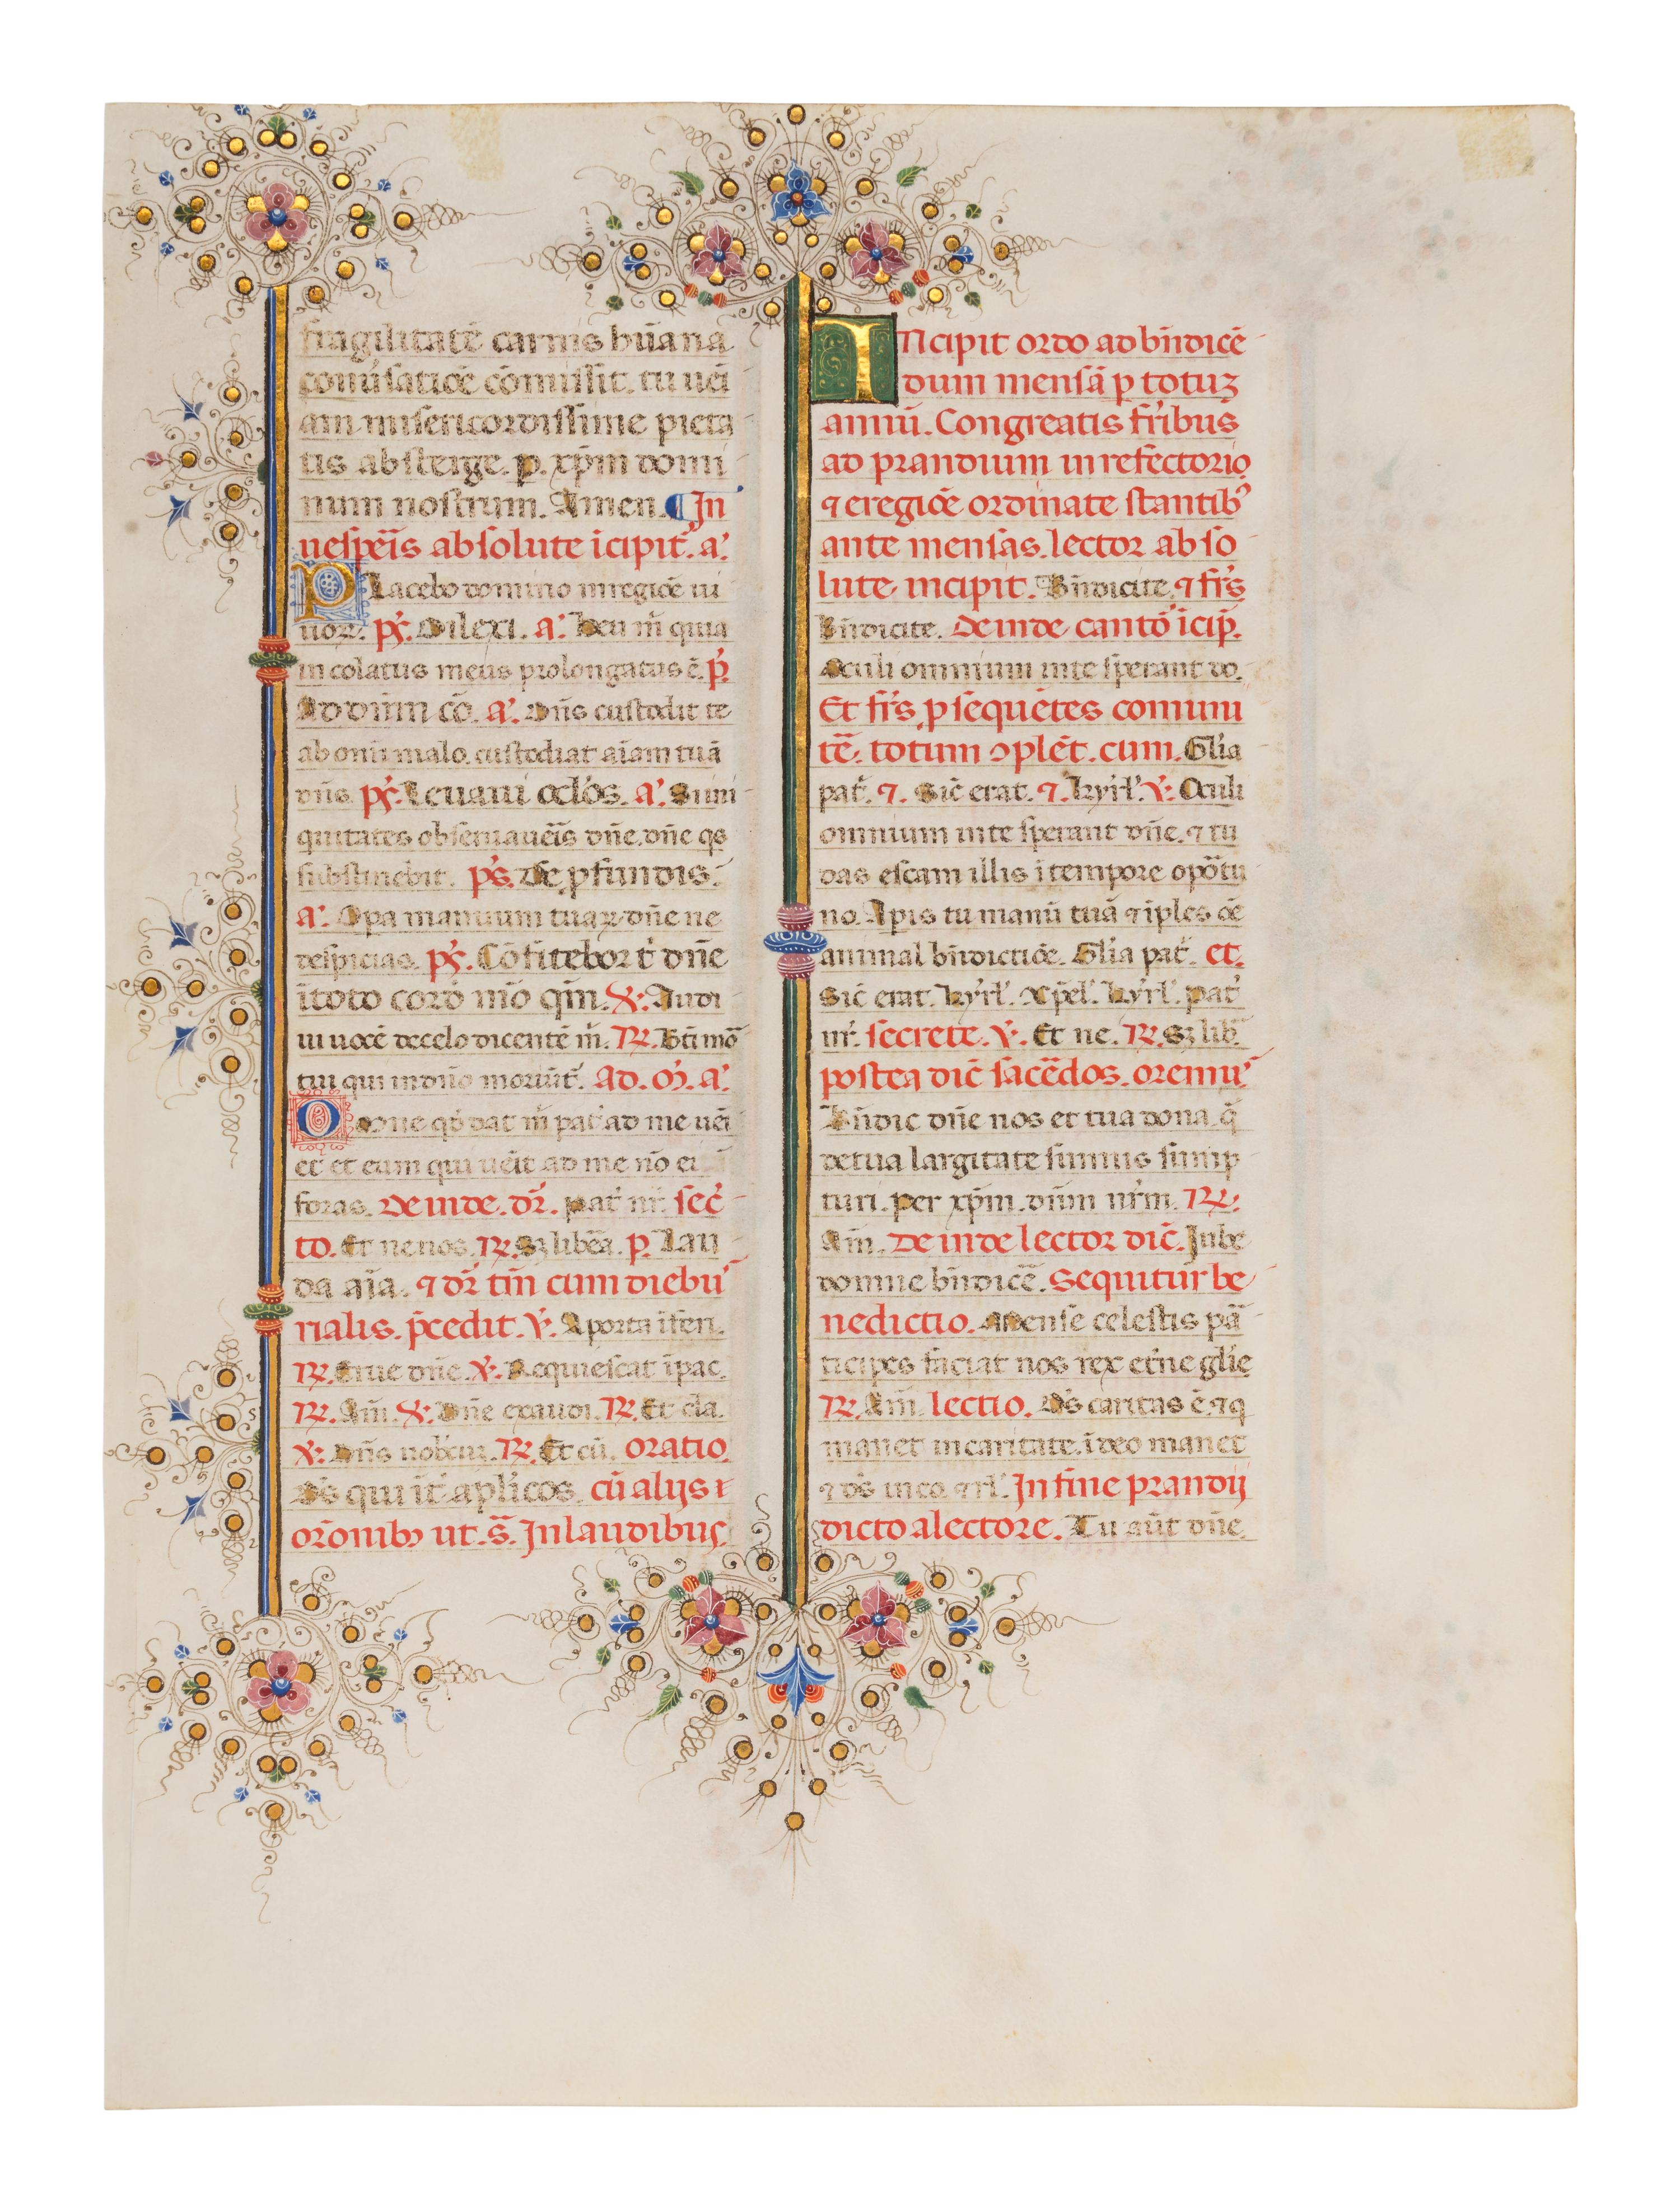 fragilitatē carnis hūana
cōūsatiōe cōmisit. tu uēi
am misericordissime pieta
tis absterge. p. xp̄m domi
num nostrum. Amen. ¶ In
uesp̄eis absolute īcipit. a̓.
Placebo domino in regiōe ui
uoꝝ. p̄s. Dilexi. a̓. Heu m̄ quia
in colatus meus prolongatus ē. p̄.
Ad dūm cō. a̓. Dn̄s custodit te
ab om̄i malo. custodiat aīam tuā
dn̄s. p̄s. Leuaui oclo̓s. a̓. Si ini
quitates obseruaueīs dn̄e. dn̄e qs
substinebit. p̄s. De ꝓfundis.
a̓. Opa manuum tuaꝝ dn̄e ne
despicias. p̄s. Cōfitebor t̓ dn̄e
ī toto cord̓ mō qm̄. ℣. Audi
ui uocē de celo dicentē m̄. ℞. Bt̄i mō
tui qui in dn̄o moriūt̓. Ad. M̄. a̓.
Omne qd̓ dat m̄ pat̓ ad me uēi
et et eum qui ueīt ad me nō ei
foras. Deinde. dr̄. pat̓ nr̄. sec̓
to. Et ne nos. ℞. Sꝫ libēa. p. Lau
da aīa. ⁊ dr̄ tm̄ cum die bu
rialis. p̄cedit. ℣. A porta īferi.
℞. Erue dn̄e. ℣. Requiescat ī pac.
℞. Am̄. ℣. Dn̄e exaudi. ℞. Et cla.
℣. Dn̄s nobcuꝫ. ℞. Et cū. oratio.
Ds̄ qui īt̓ aplīcos. cū alijs ı
orōnibꝰ ut. s̄. In laudibus.
INcipit ordo ad bn̄dicē
dum mensā p totuꝫ
annū. Congreatis fr̄ibus
ad prandium in refectorio
⁊ e regiōe ordinate stantibꝰ
ante mensas. lector abso
lute incipit. Bn̄dicite. ⁊ fr̄s
Bn̄dicite. Deinde cantō īcip̄.
Oculi omnium in te sperant do.
Et fr̄s ꝓsequētes comuni
tē. totum ↄplēt. cum. Gl̄ia
pat̓. ⁊. Sic̄ erat. ⁊. kyrl̓. ℣. Oculi
omnium in te sperant dn̄e. ⁊ tu
das escam illis ī tempore opōtu
no. Apis tu manū tuā ⁊ īples oē
animal bn̄dictiōe. Gl̄ia pat̓. et.
Sic̄ erat. kyrl̓. Xp̄el̓. kyrl̓. pat̓
nr̄. secrete. ℣. Et ne. ℞. Sꝫ lib̄.
postea dic̄ sacēdos. oremꝰ
Bn̄dic dn̄e nos et tua dona. q̄
de tua largitate sumus sump
turi. per xp̄m. dūm nr̄m. ℞.
Am̄. Deinde lector dic̄. Iube
domne bn̄dicē. Sequitur be
nedictio. Mense celestis pā
ticipes faciat nos rex et̄ne glīe
℞. Am̄. lectio. Ds̄ caritas ē. ⁊ q
manet in caritate. ī deo manet
⁊ ds̄ in eo. ⁊ rl̓. In fine prandij
dicto a lectore. Tu aūt dn̄e.